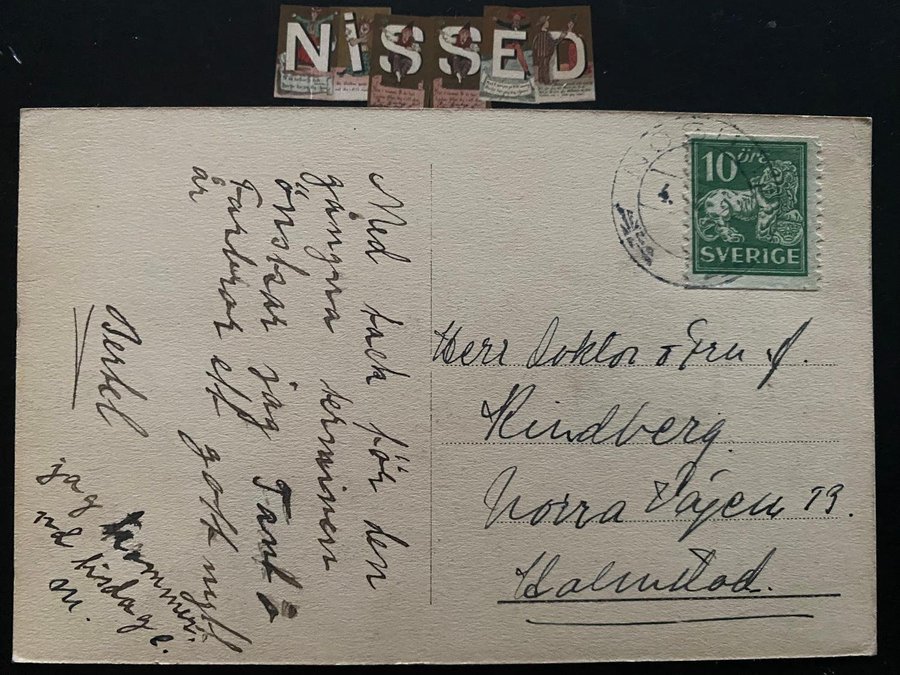 NiSSED
10 öre
SVERIGE
Med tack för den
gångna terminen
önskar jag Tant o
Farbror ett gott nytt
år
Bertel
jag kommer
tisdag e.
Herr Doktor o Fru J.
Kindberg
Norra Vägen 19.
Halmstad.